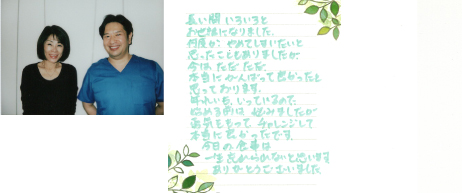 長い間 いろいろと
お世話になりました。
何度か やめてしまいたいと
思ったこともありましたが
今は、ただただ
本当にがんばって良かったと
思っております。
いっているので、
悩める方は 悩みましたが
勇気をもって チャレンジして
本当に良かったです。
今日の 食事は
一生忘れられないと思います
ありがとうございました